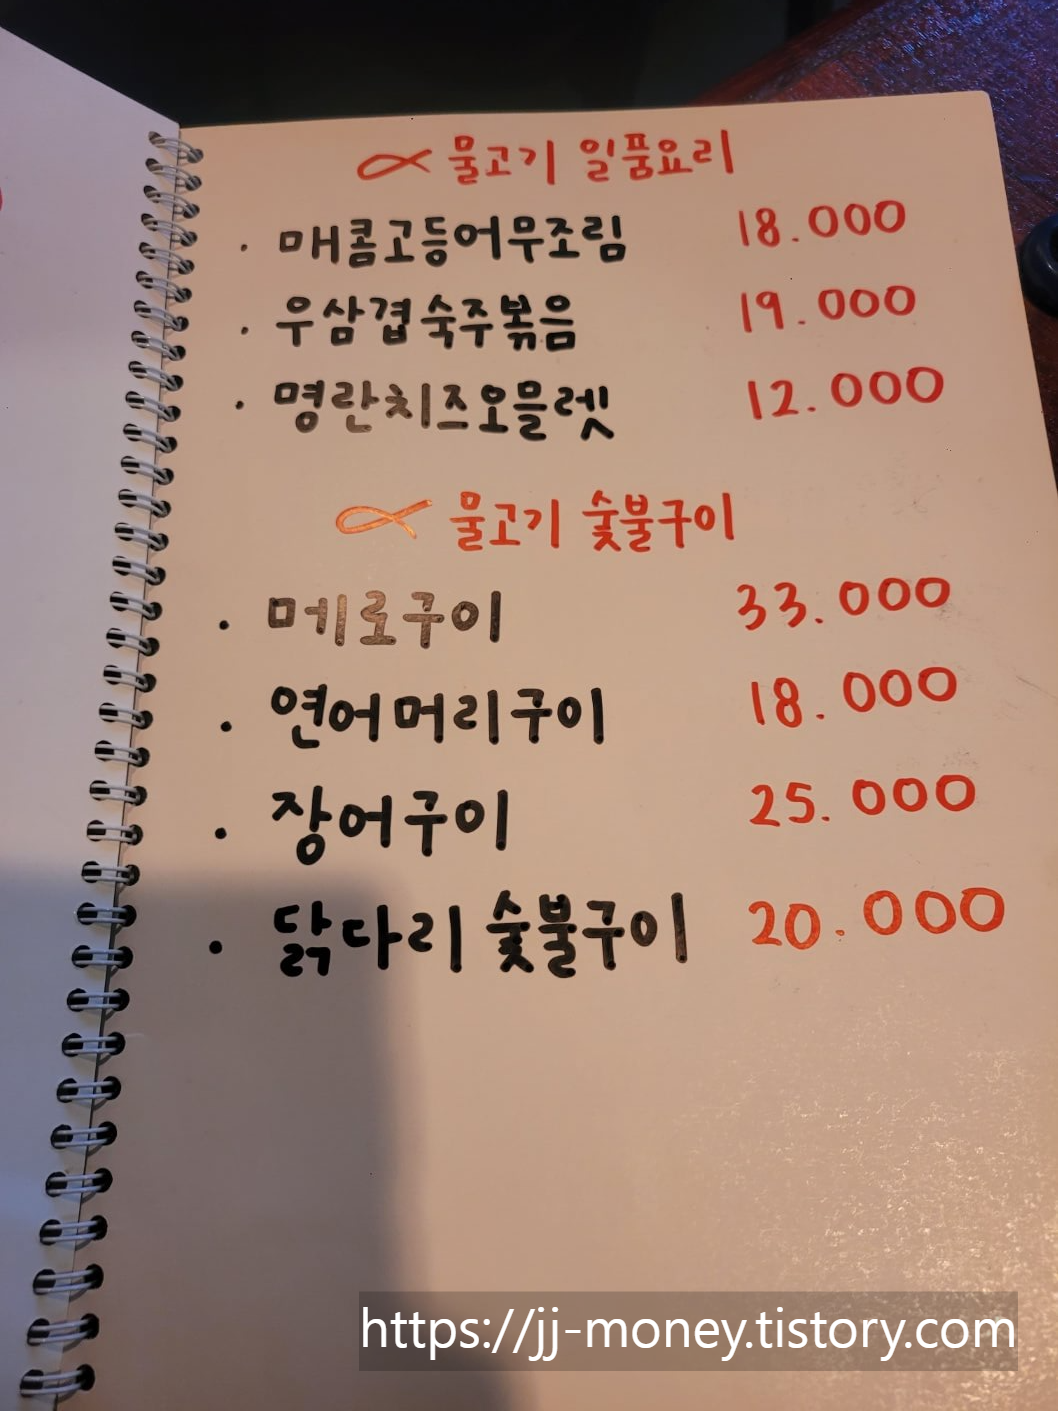 물고기 일품요리
· 매콤고등어무조림 18.000
· 우삼겹숙주볶음 19.000
· 명란치즈오믈렛 12.000
물고기 숯불구이
· 메로구이 33.000
· 연어머리구이 18.000
· 장어구이 25.000
· 닭다리 숯불구이 20.000
https://jj-money.tistory.com